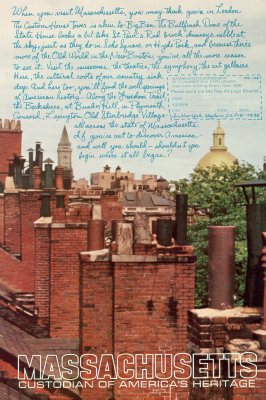 When you visit Massachusetts, you may think you're in London.
The Custom House Tower is akin to Big Ben. The Bullfinch Dome of the
State House looks a bit like St. Paul's. Red brick chimneys salute at
the sky, just as they do in Soho Square or Hyde Park, and because there's
more of the Old World in the New Boston, you've all the more reason
to see it. Visit the museums, the theatre, the symphony, the art galleries.
Here, the cultural roots of our country sink
deep. And here too, you'll find the wellsprings
of American history. Along the Freedom Trail,
the Berkshires, at Bunker Hill, in Plymouth,
Concord, Lexington, Old Sturbridge Village—
all across the state of Massachusetts.
If you're out to discover America—
and well you should—shouldn't you
begin where it all began?
Please send me the free 48-page
MASSACHUSETTS
CUSTODIAN OF AMERICA'S HERITAGE